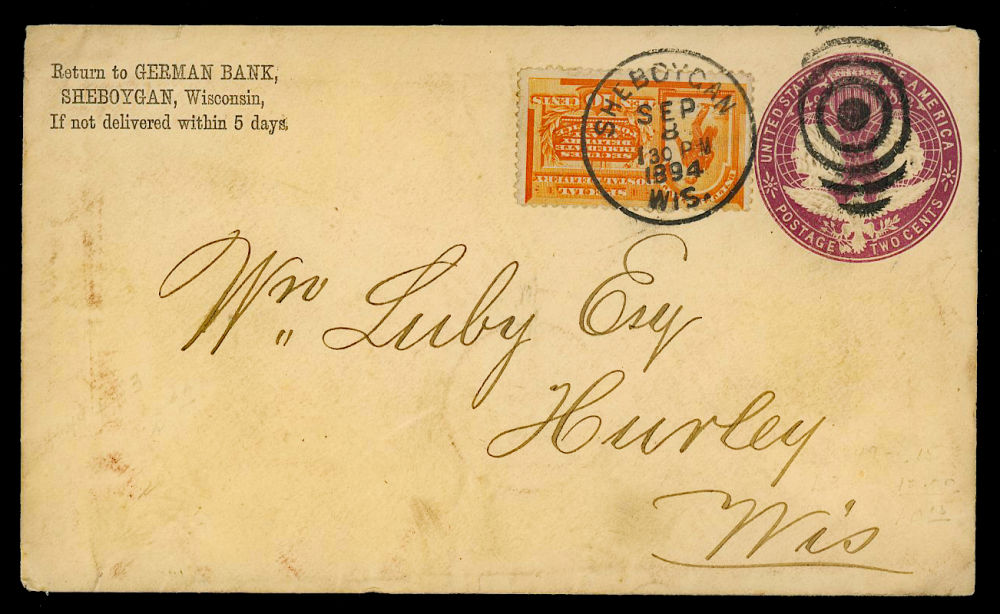 Return to GERMAN BANK,
SHEBOYGAN, Wisconsin,
If not delivered within 5 days.
SHEBOYGAN
SEP
8
130 PM
1894
WIS.
UNITED STATES OF AMERICA
POSTAGE TWO CENTS
Wm. Luby Esq
Hurley
Wis